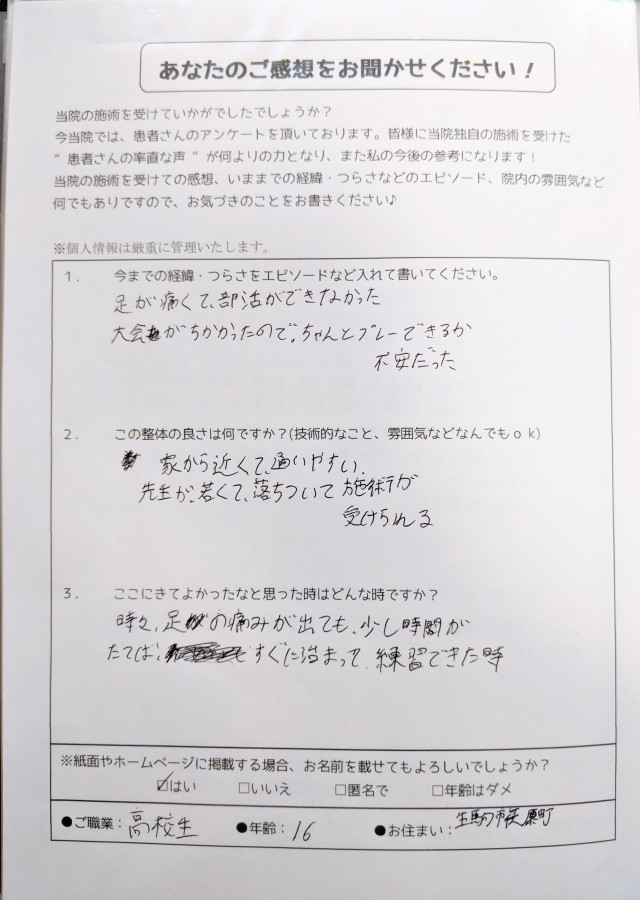 あなたのご感想をお聞かせください！
当院の施術を受けていかがでしたでしょうか？
今当院では、患者さんのアンケートを頂いております。皆様に当院独自の施術を受けた
”患者さんの率直な声”が何よりの力となり、また私の今後の参考になります！
当院の施術を受けての感想、いままでの経緯・つらさなどのエピソード、院内の雰囲気など
何でもありですので、お気づきのことをお書きください♪
※個人情報は厳重に管理いたします。
1． 今までの経緯・つらさをエピソードなど入れて書いてください。
足が痛くて、部活ができなかった
大会がちかかったので。ちゃんとプレーできるか
不安だった
2． この整体の良さは何ですか？(技術的なこと、雰囲気などなんでもｏｋ)
家から近くて、通いやすい。
先生が、若くて、落ちついて施術が
受けられる
3． ここにきてよかったなと思った時はどんな時ですか？
時々、足の痛みが出ても、少し時間が
たてば、すぐに治まって、練習できた時
※紙面やホームページに掲載する場合、お名前を載せてもよろしいでしょうか？
☑はい □いいえ □匿名で □年齢はダメ
●ご職業：高校生 ●年齢：16 ●お住まい：生駒市 原町